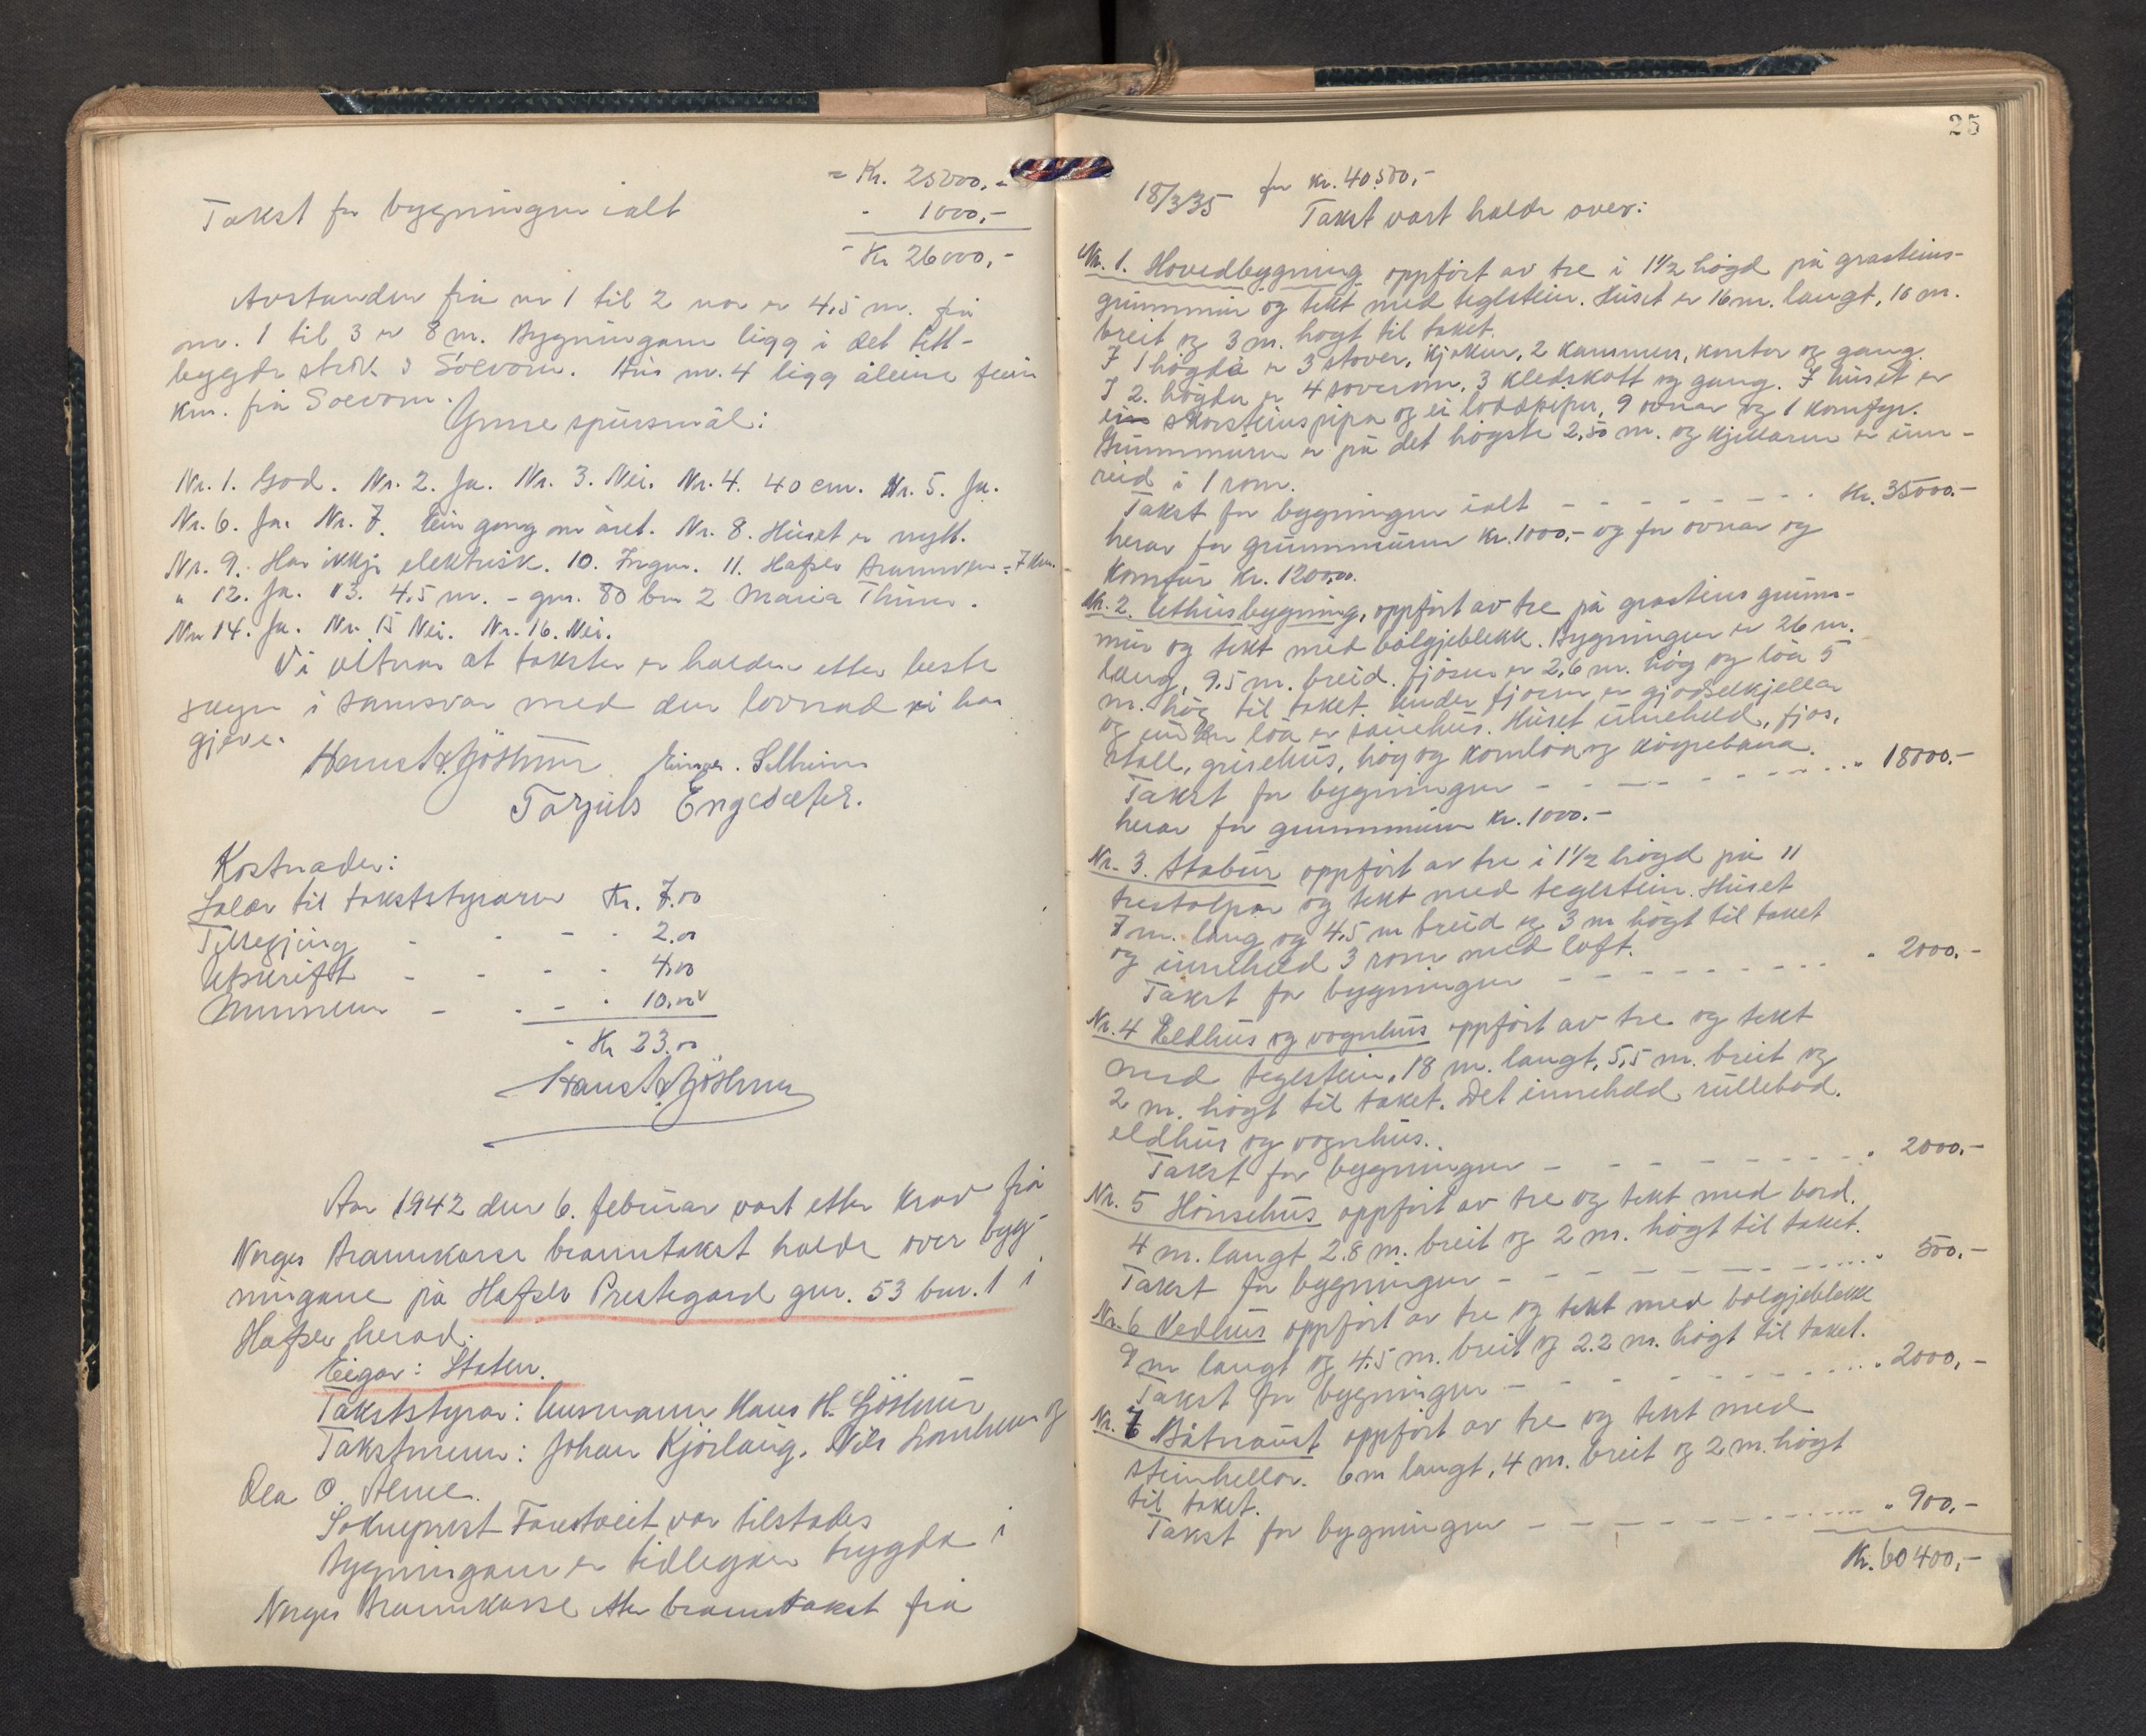 = Kr. 25000.-
Takst for bygningen ialt - 1000,-
- Kr 26000,-
Avstanden frå nr 1 til 2 nor er 4,5 m. frå
nr. 1 til 3 er 8 m. Bygningane ligg i det tett-
bygde strok i Solvorn. Hus nr. 4 ligg åleine fein
km. frå Solvorn.
Ymse spursmål:
Nr. 1. God. Nr. 2. Ja. Nr. 3. Nei. Nr. 4. 40 cm. Nr. 5. Ja.
Nr. 6. Ja. Nr. 7. Ein gong om året. Nr. 8. Huset er nytt.
Nr. 9. Har ikkje elektrisk. 10. Ingen. 11. Hafslo Brannven - 7 km.
" 12. Ja. 13. 4,5 m. - gnr. 80 bnr 2 Maria Thune.
Nr 14. Ja. Nr. 15 Nei. Nr. 16. Nei.
Vi vitnar at taksten er halden etter beste
skyn i samsvar med den lovnad vi har
gjeve.
Hans H. Gjöstmur Einar Selheim
Torjuls Engesæter.
Kostnader:
Salær til takststyraren Kr. 7.00
Tilsegjing - - - - 2.00
Utskrift - - - - 4.00
Mennene - - - - 10.00
- Kr 23.00
Hans H. Gjöstmur
Aar 1942 den 6. februar vart etter krav frå
Norges Brannkasse branntakst halde over byg-
ningane på Hafslo Prestegard gnr. 53 bnr. 1 i
Hafslo herad.
Eigar: Staten.
Takststyrar: lensmann Hans H. Gjöstmur
Takstmenn: Johan Kjörlaug. Nils Lomheim og
Ola O. Alme.
Sokneprest Tarestveit var tilstades
Bygningane er tidlegare trygda i
Norges Brannkasse etter branntakst frå
25
18/3 35 for kr. 40500,-
Takst vart halde over:
Nr. 1. Hovedbygning oppfört av tre i 1½ högd på grasteins-
grunnmur og tekt med teglstein. Huset er 16 m. langt, 10 m.
breit og 3 m. högt til taket.
I 1 högda er 3 stover, kjöken, 2 kammers, kontor og gang.
I 2. högda er 4 soverom, 3 kledskott og gang. I huset er
ein skorsteinspipa og ei loddpipe, 9 ovnar og 1 komfyr.
Grunnmuren er på det högste 2,50 m. og kjellaren er inn-
reid i 1 rom.
Takst for bygningen ialt - - - - - - - - Kr. 35000.-
herav for grunnmuren kr. 1000,- og for ovnar og
komfür kr. 1200.00.
Nr. 2. Uthusbygning, oppfört av tre på grasteins grunn-
mur og tekt med bölgjeblekk. Bygningen er 26 m.
lang, 9.5 m. breid. fjösen er 2,6 m. hög og löa 5
m. hög til taket. Under fjösen er gjödselkjellar
og under löa er sauehus. Huset inneheld, fjös,
stall, grisehus, höy og kornlöa og köyrebana.
Takst for bygningen - - - - - - - - " 18000.-
herav for grunnmuren kr. 1000.-
Nr. 3. Stabur oppfört av tre i 1½ högd på 11
trestolpar og tekt med teglstein. Huset
7 m. lang og 4,5 m breid og 3 m högt til taket
og inneheld 3 rom med loft.
Takst for bygningen - - - - - - - - " 2000.-
Nr. 4 Eldhus og vognhus oppfört av tre og tekt
med teglstein. 18 m. langt, 5,5 m. breit og
2 m. högt til taket. Det inneheld rullebod,
eldhus og vognhus.
Takst for bygningen - - - - - - - - " 2000.-
Nr. 5 Hönsehus oppfört av tre og tekt med bord.
4 m. langt 2.8 m. breit og 2 m. högt til taket.
Takst for bygningen - - - - - - - - " 500.-
Nr. 6 Vedhus oppfört av tre og tekt med bölgjeblekk
9 m langt og 4.5 m. breit og 2.2 m. högt til taket.
Takst for bygningen - - - - - - - - " 2000,-
Nr. 7 Båtnaust oppfört av tre og tekt med
steinhellar. 6 m langt, 4 m. breit og 2 m. högt
til taket.
Takst for bygningen - - - - - - - - " 900,-
Kr. 60 400,-